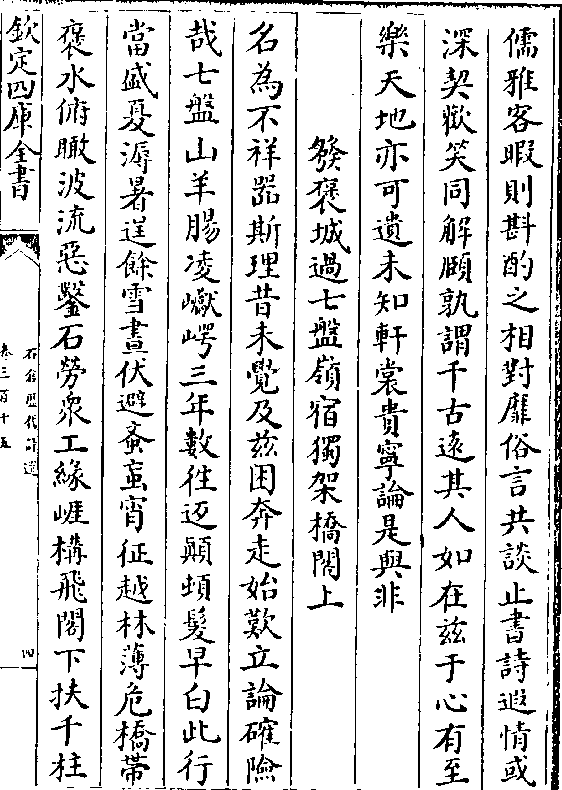 儒雅客暇則斟酌之相對靡俗言共談止書詩遐情或
深契歡笑同解頤孰謂千古遠其人如在兹于心有至
樂天地亦可遺未知軒裳貴寧論是與非
發褒城過七盤嶺宿獨架橋閣上
名為不祥器斯理昔未覺及兹困奔走始歎立論確險
哉七盤山羊腸凌巘崿三年數徃迈顛頓髮早白此行
當盛夏溽暑逞餘雪晝伏避蚤䖟宵征越林薄危橋帶
褒水俯瞰波流惡鑿石勞衆工緣崕構飛閣下扶千柱
欽定四庫全書
石倉歴代詩選
卷三百十五
四